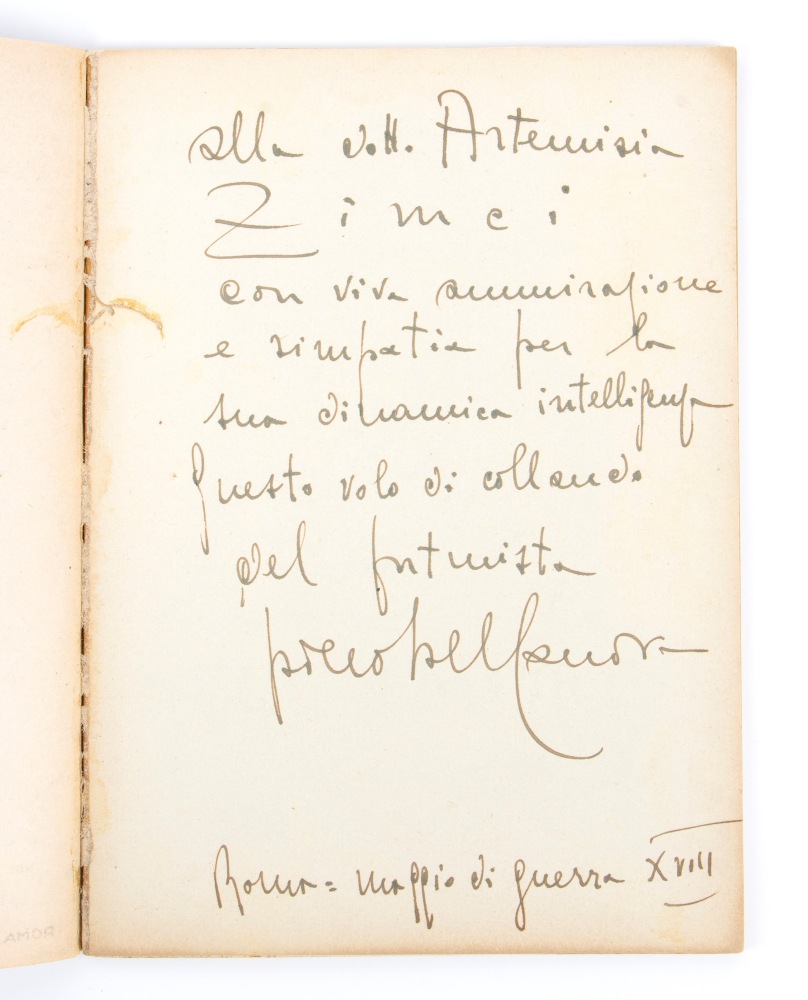 alla dott. Artemisia
Zimei
con viva ammirazione
e simpatia per la
sua dinamica intelligenza
Questo volo di collaudo
del futurista
piero bellanova
Roma = maggio di guerra XVIII
ROMA